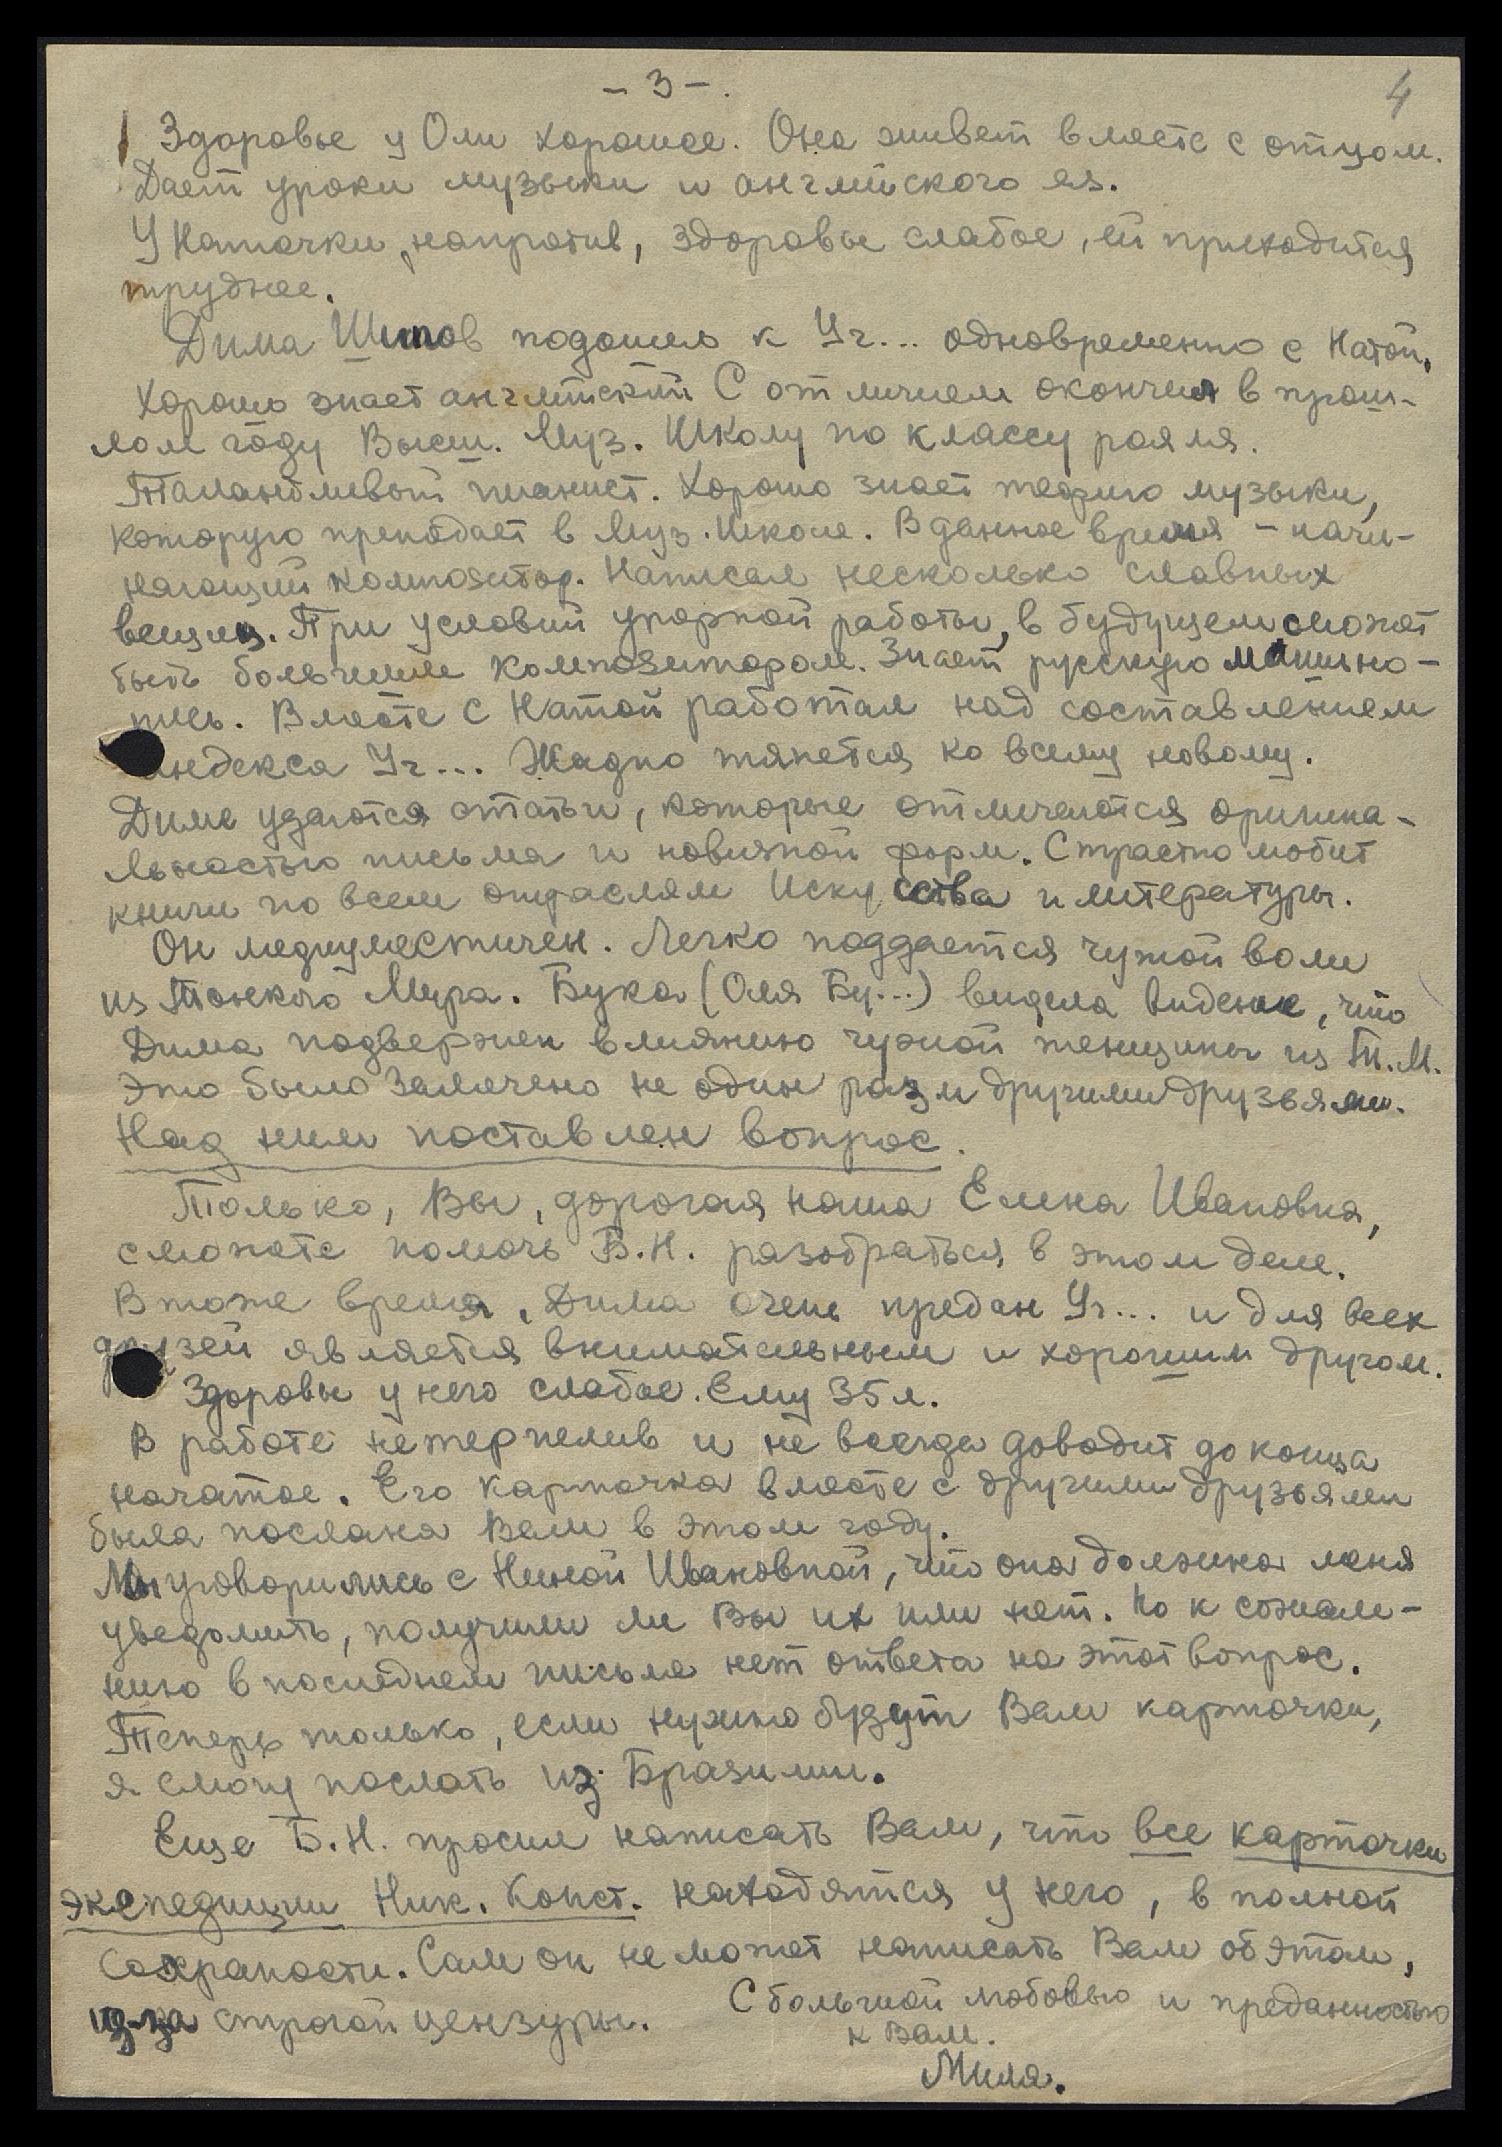 - 3 -.
4
Здоровье у Оли хорошее. Она живет вместе с отцом.
Дает уроки музыки и английского яз.
У Наточки, напротив, здоровье слабое, ей приходится
труднее.
Дима Шипов подошел к Уч... одновременно с Натой.
Хорошо знает английский С отличием окончил в прош-
лом году Высш. Муз. Школу по классу рояля.
Талантливый пианист. Хорошо знает теорию музыки,
которую преподает в Муз. Школе. В данное время - начи-
нающий композитор. Написал несколько славных
вещиц. При условии упорной работы, в будущем сможет
быть большим композитором. Знает русскую машино-
пись. Вместе с Натой работал над составлением
индекса Уч... Жадно тянется ко всему новому.
Диме удаются статьи, которые отличаются оригина-
льностью письма и новизной форм. Страстно любит
книги по всем отраслям Искусства и литературы.
Он медиумистичен. Легко поддается чужой воли
из Тонкого Мира. Бука (Оля Бу...) видела видение, что
Дима подвержен влиянию чужой женщины из Т.М.
Это было замечено не один раз и другими друзьями.
Над ним поставлен вопрос.
Только, Вы, дорогая наша Елена Ивановна,
сможете помочь Б.Н. разобраться в этом деле.
В тоже время, Дима очень предан Уч... и для всех
друзей является внимательным и хорошим другом.
Здоровье у него слабое. Ему 35 л.
В работе нетерпелив и не всегда доводит до конца
начатое. Его карточка вместе с другими друзьями
была послана Вам в этом году.
Мы уговорились с Ниной Ивановной, что она должна меня
уведомить, получили ли Вы их или нет. Но к сожале-
нию в последнем письме нет ответа на этот вопрос.
Теперь только, если нужно будут Вам карточки,
я смогу послать из Бразилии.
Еще Б.Н. просил написать Вам, что все карточки
экспедиции Ник. Конст. находятся у него, в полной
сохраности. Сам он не может написать Вам об этом,
из-за строгой цензуры.
С большой любовью и преданностью
к Вам.
Миля.